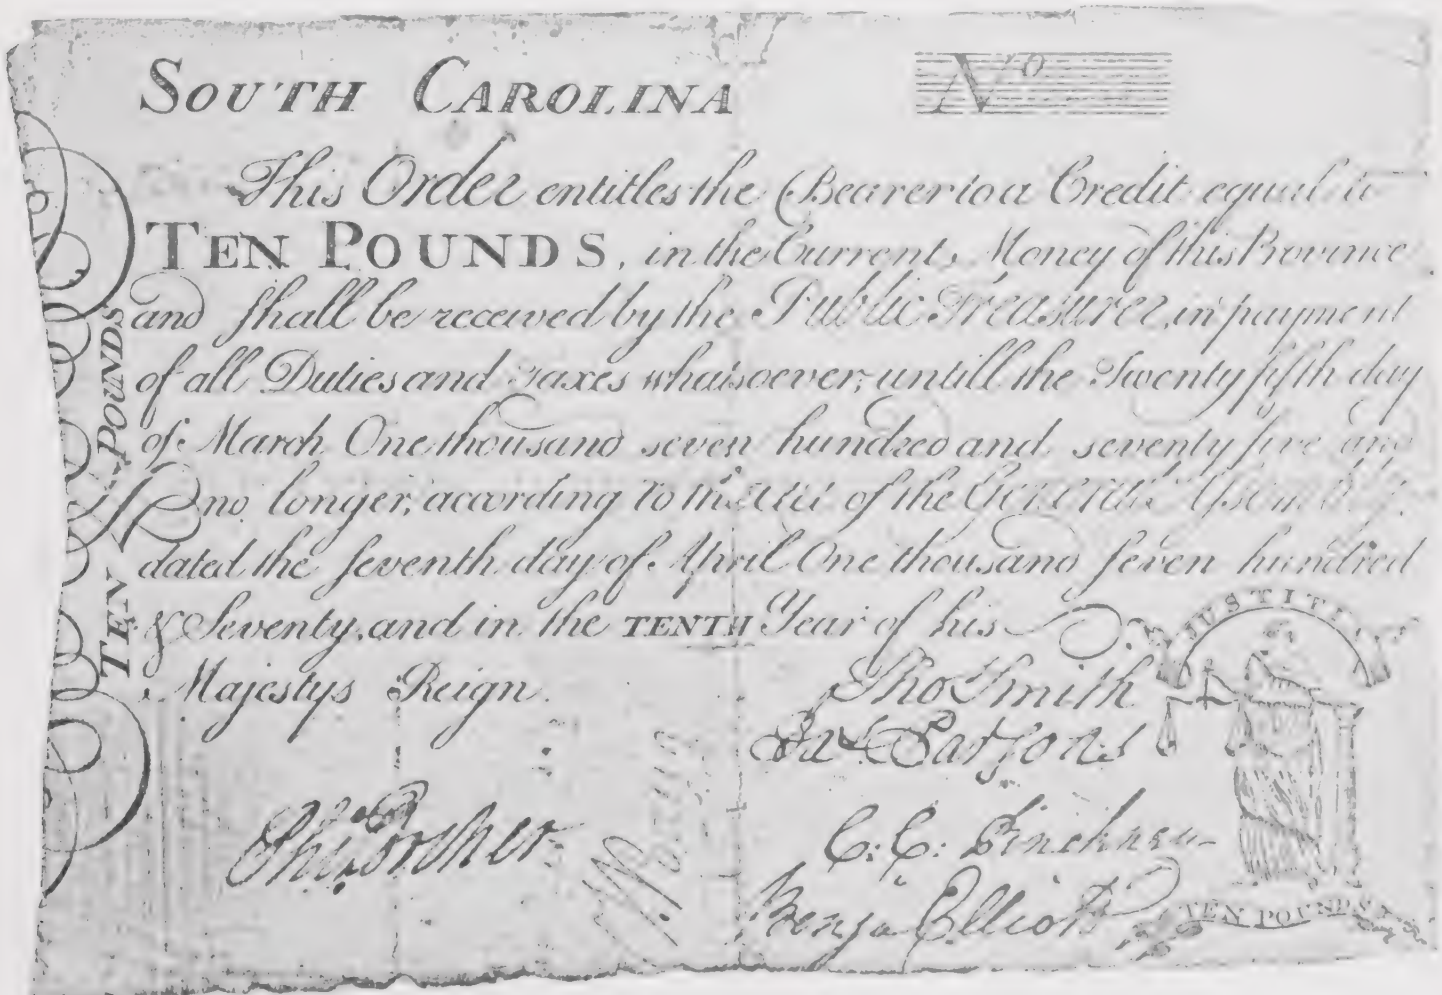 SOUTH CAROLINA
Nro
This Order entitles the Bearer to a Credit equal to
TEN POUNDS, in the Current Money of this Province
and shall be received by the Public Treasurer, in payment
of all Duties and Taxes whatsoever, untill the Twenty fifth day
of March One thousand seven hundred and seventy five and
no longer, according to the Act of the General Assembly,
dated the seventh day of April One thousand seven hundred
& Seventy, and in the TENTH Year of his
Majestys Reign.
TEN POUNDS
Tho Smith
Jas Parsons
C: C: Pinckney
Benja Elliott
JUSTITIA
TEN POUNDS